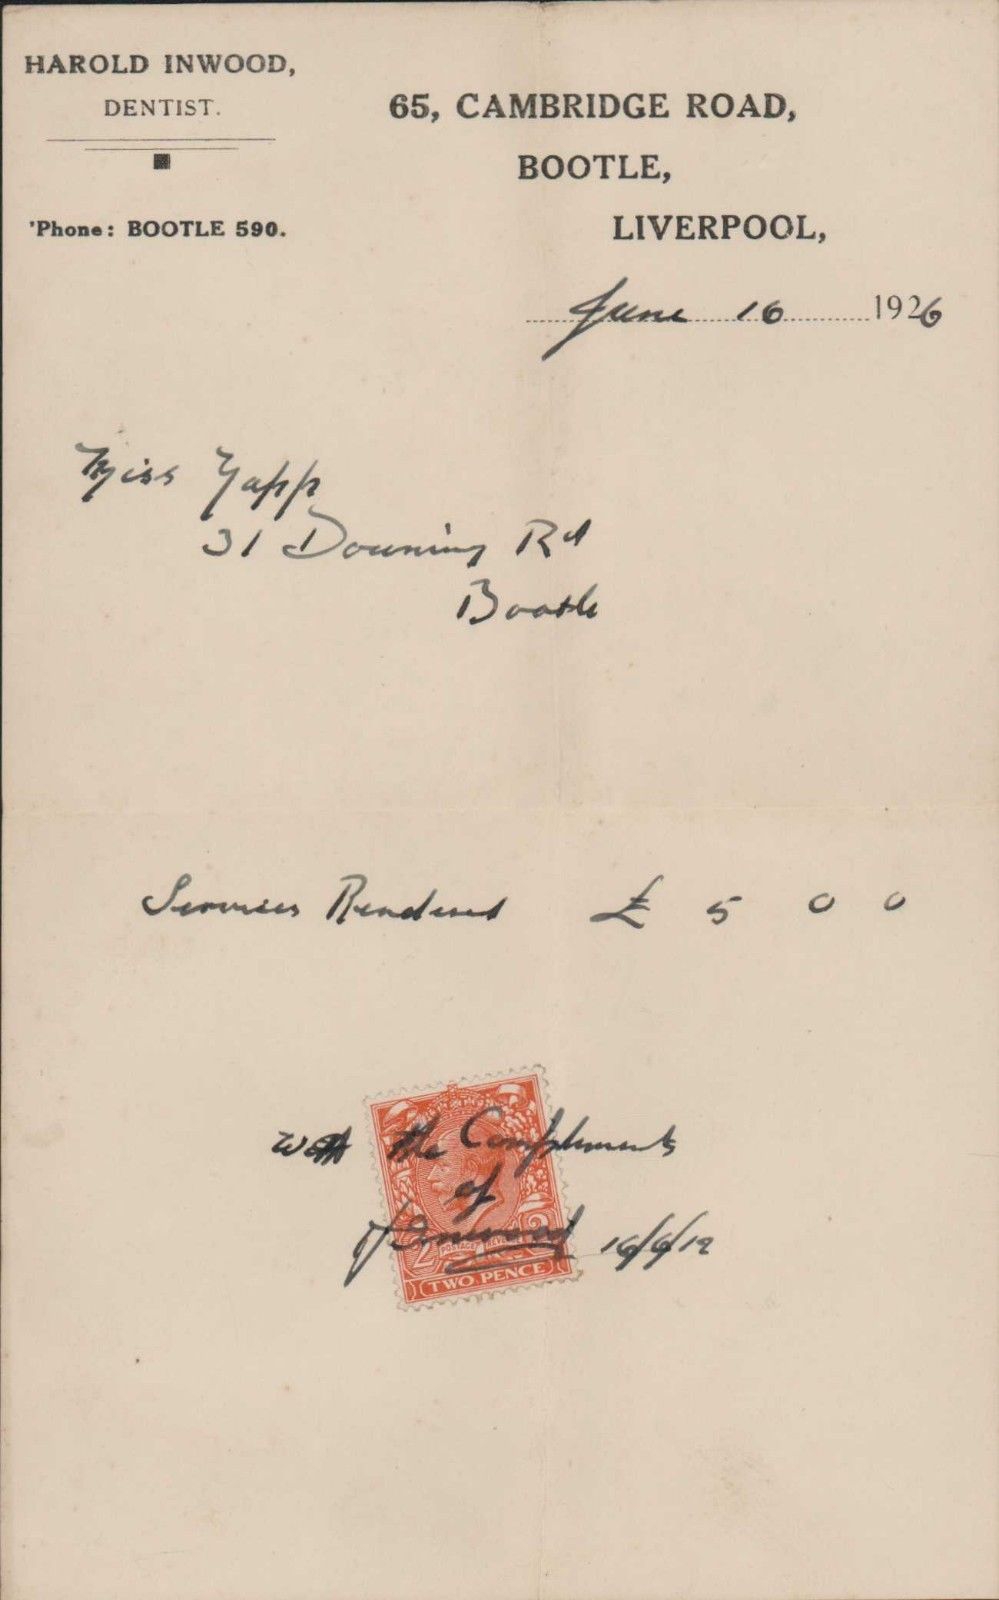 HAROLD INWOOD,
DENTIST.
'Phone: BOOTLE 590.
65, CAMBRIDGE ROAD,
BOOTLE,
LIVERPOOL,
June 16 1926
Miss Yapp
31 Downing Rd
Bootle
Services Rendered £ 5 0 0
With the Compliments
of
H Inwood 16/6/
2 POSTAGE REVENUE 2
TWO PENCE